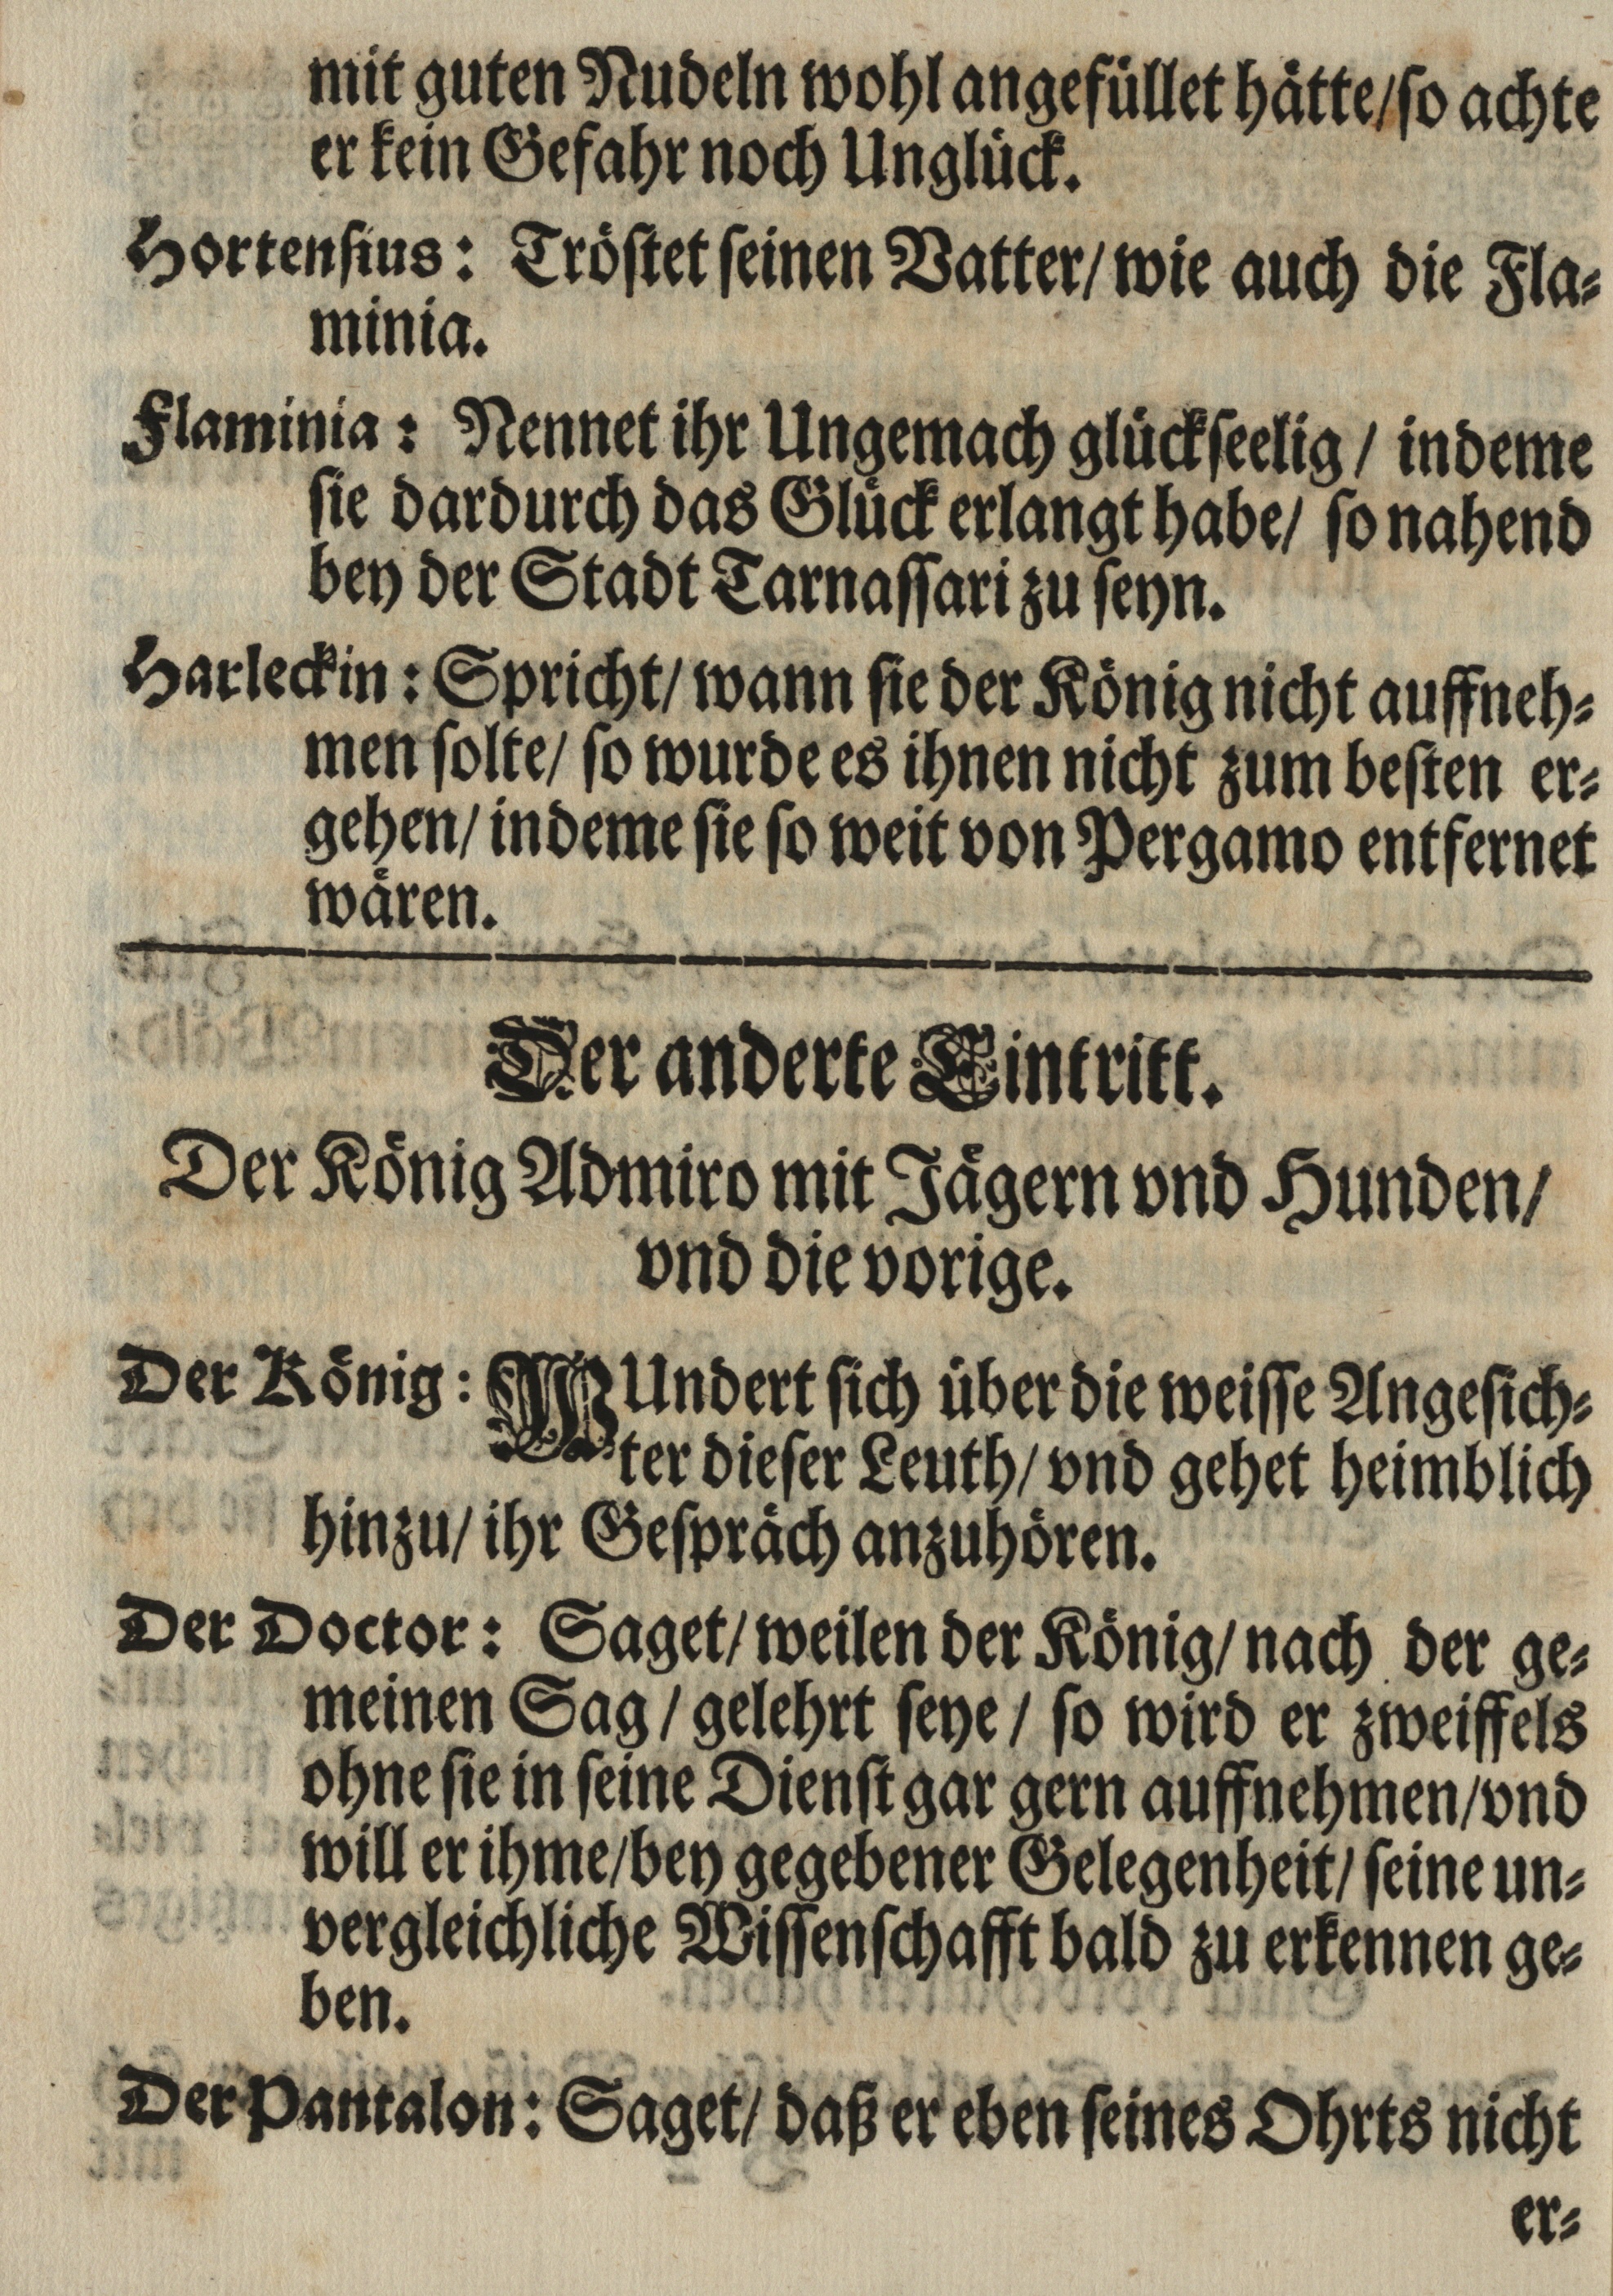 mit guten Nudeln wohl angefüllet hätte/so achte
er kein Gefahr noch Unglück.
Hortensius: Tröstet seinen Vatter/ wie auch die Fla-
minia.
Flaminia: Nennet ihr Ungemach glückseelig / indeme
sie dardurch das Glück erlangt habe/ so nahend
bey der Stadt Tarnassari zu seyn.
Harleckin: Spricht/ wann sie der König nicht auffneh-
men solte/ so wurde es ihnen nicht zum besten er-
gehen/ indeme sie so weit von Pergamo entfernet
wären.
Der anderte Eintritt.
Der König Admiro mit Jägern vnd Hunden/
vnd die vorige.
Der König: WUndert sich über die weisse Angesich-
ter dieser Leuth/ vnd gehet heimblich
hinzu/ ihr Gespräch anzuhören.
Der Doctor: Saget/ weilen der König/ nach der ge-
meinen Sag / gelehrt seye / so wird er zweiffels
ohne sie in seine Dienst gar gern auffnehmen/vnd
will er ihme/bey gegebener Gelegenheit/ seine un-
vergleichliche Wissenschafft bald zu erkennen ge-
ben.
Der Pantalon: Saget/ daß er eben seines Ohrts nicht
er-